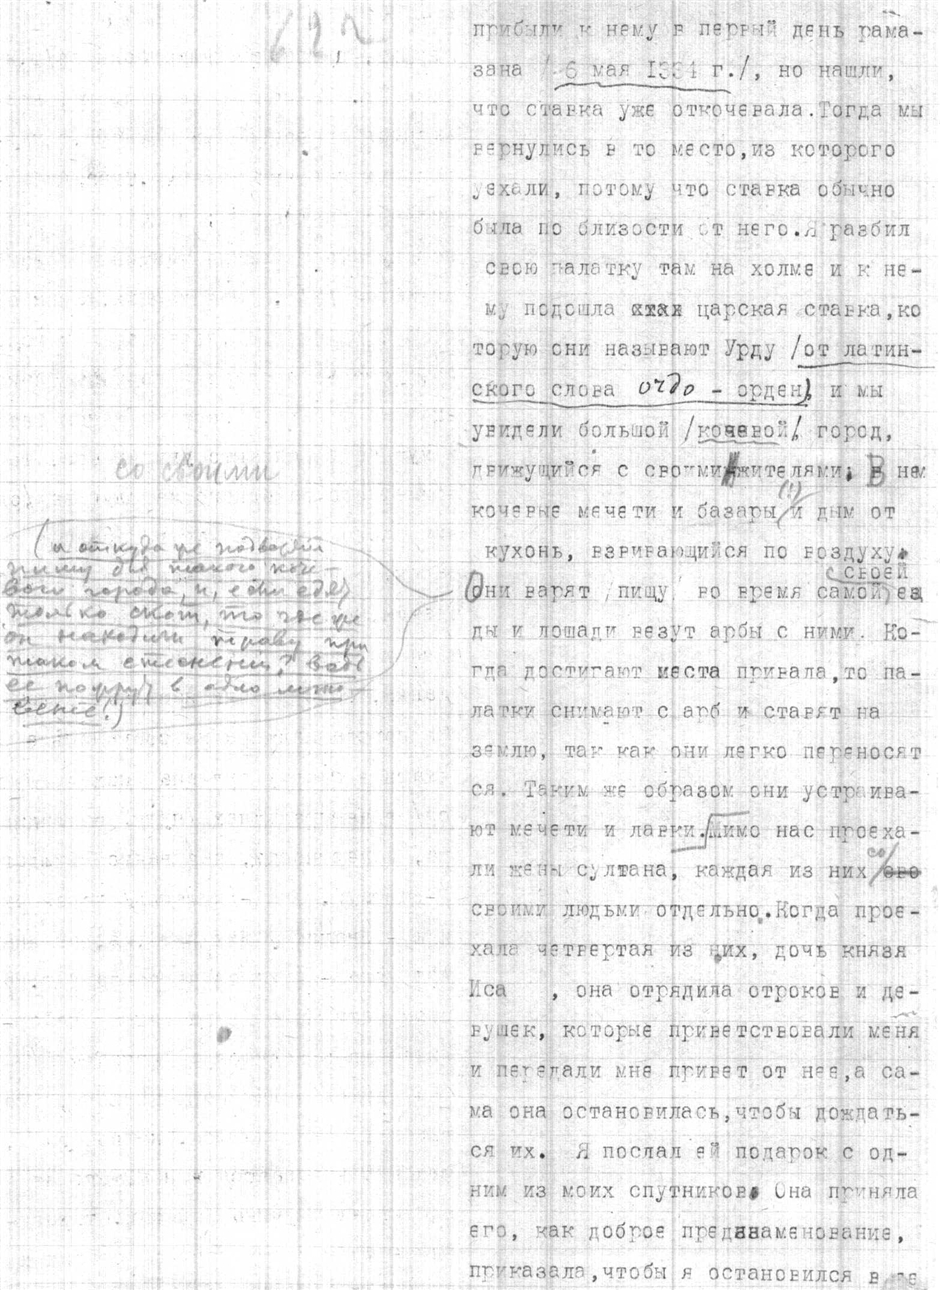 прибыли к нему в первый день рама-
зана / 6 мая 1334 г./, но нашли,
что ставка уже откочевала. Тогда мы
вернулись в то место, из которого
уехали, потому что ставка обычно
была по близости от него. Я разбил
свою палатку там на холме и к не-
му подошла царская ставка, ко
торую они называют Урду /от латин-
ского слова ordo - орден), и мы
увидели большой /кочевой/, город,
движущийся с своими жителями. В нем
кочевые мечети и базары (!) и дым от
кухонь, взвивающийся по воздуху.
своей
Они варят /пищу/ во время самой ез
ды и лошади везут арбы с ними. Ко-
гда достигают места привала, то па-
латки снимают с арб и ставят на
землю, так как они легко переносят
ся. Таким же образом они устраива-
ют мечети и лавки. Мимо нас проеха-
со
ли жены султана, каждая из них
своими людьми отдельно. Когда прое-
хала четвертая из них, дочь князя
Иса , она отрядила отроков и де-
вушек, которые приветствовали меня
и передали мне привет от нее, а са-
ма она остановилась, чтобы дождать-
ся их. Я послал ей подарок с од-
ним из моих спутников. Она приняла
его, как доброе предзнаменование,
приказала, чтобы я остановился в
со своими
(а откуда же подвозили
пищу для такого коче-
вого города, и, если едят
только скот, то где же
он находит траву при
таком стеснении?
ее в одно мгно-
вение!)